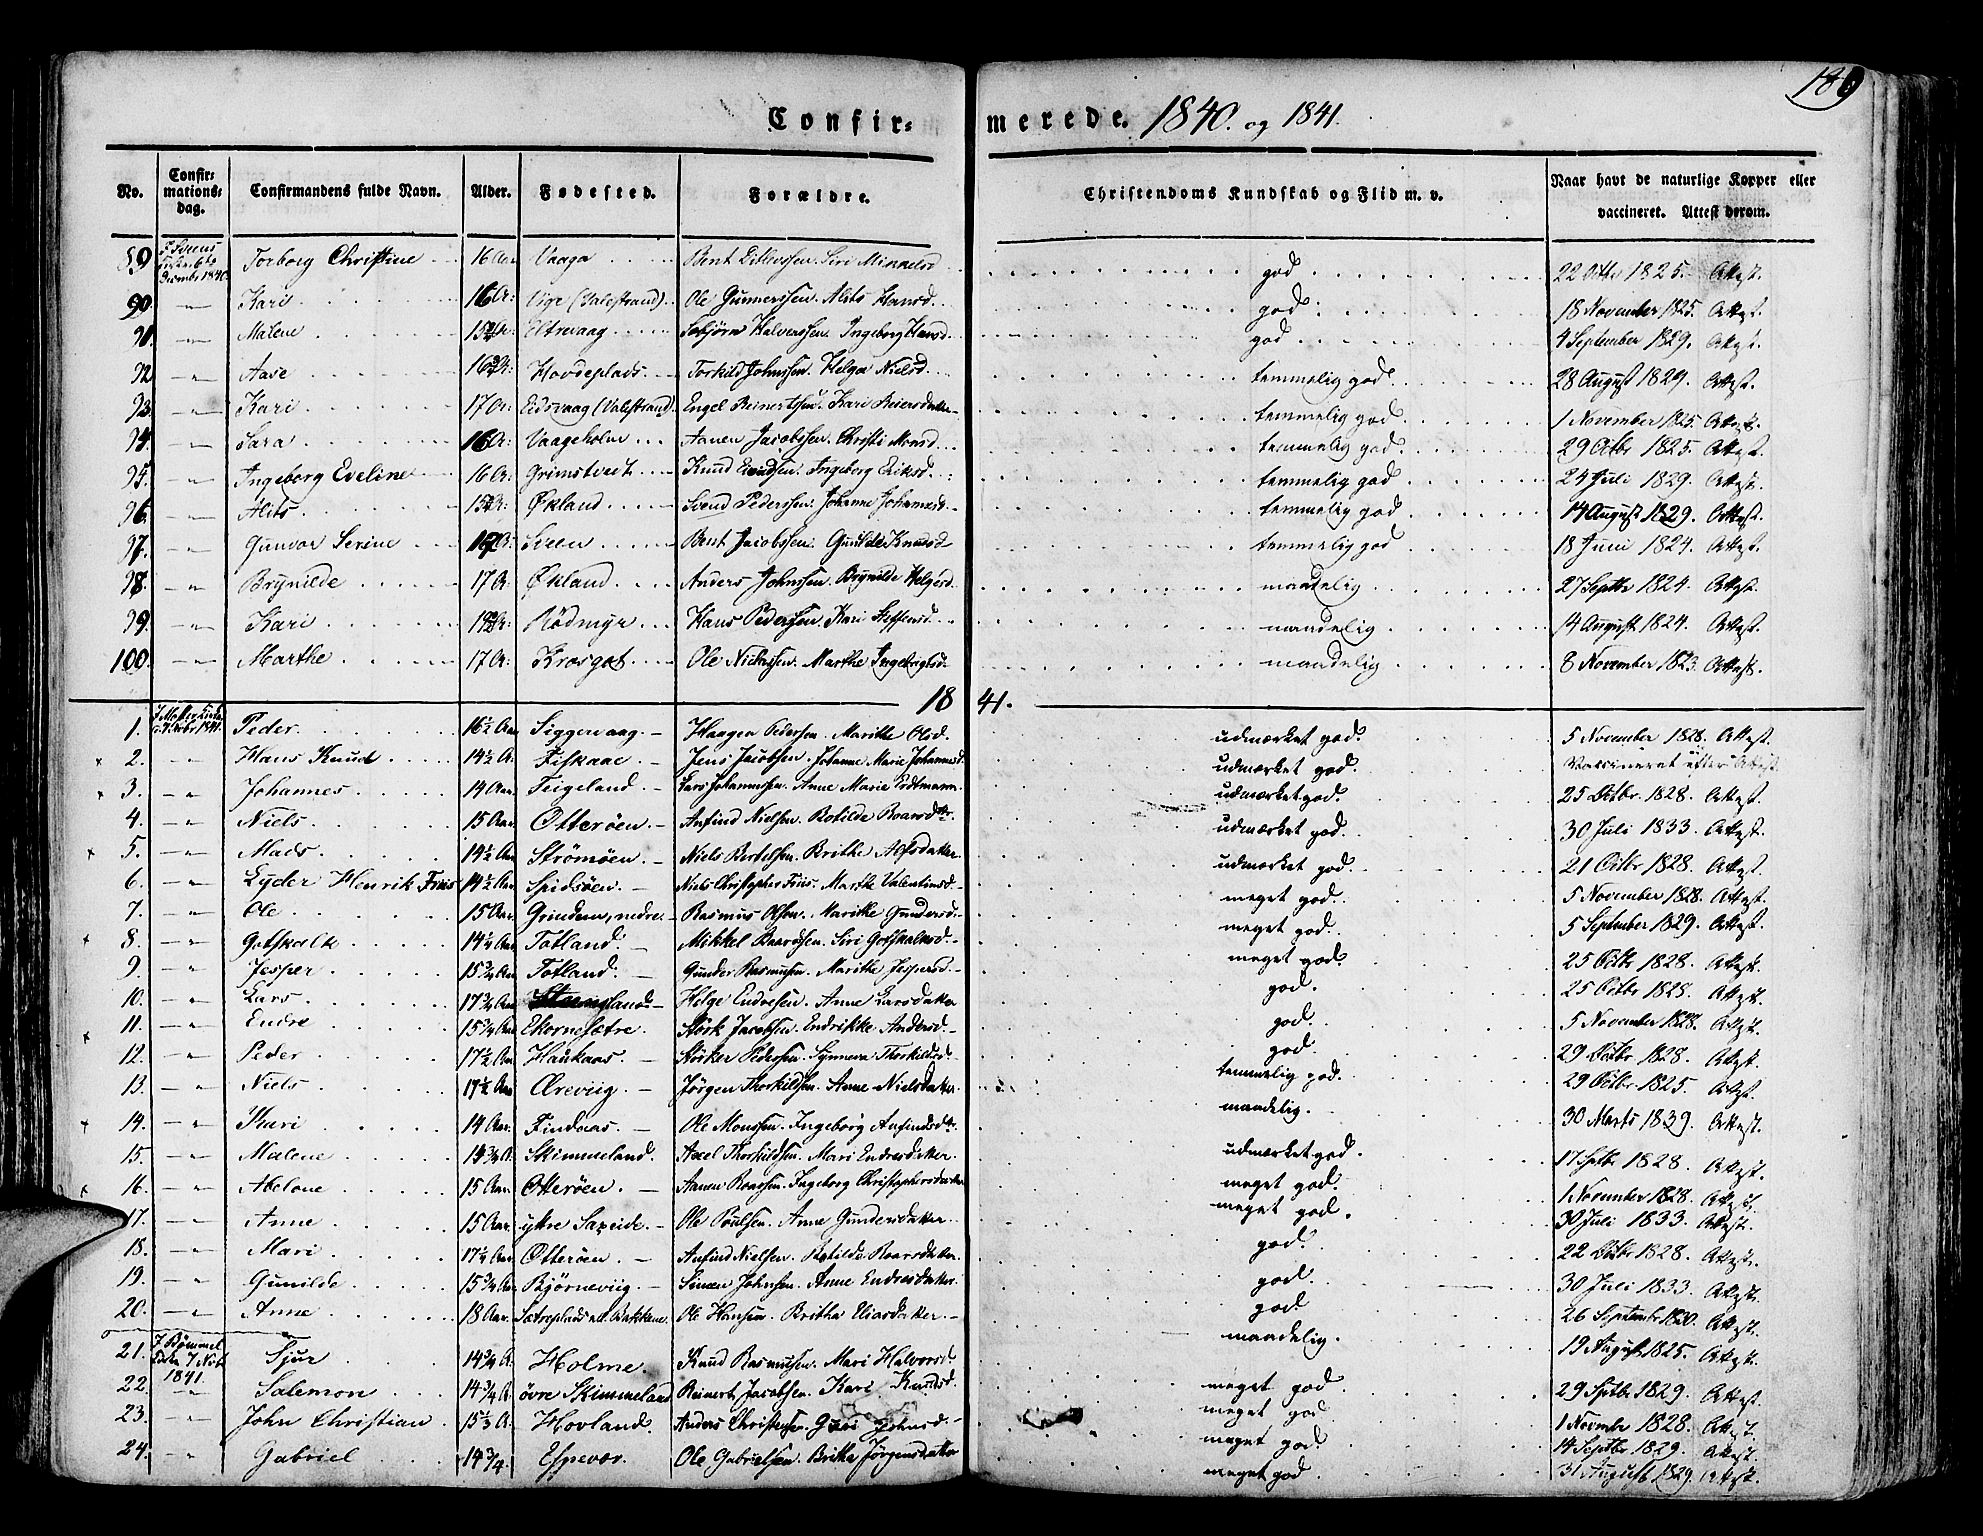 186
Confir= merede. 1840. og 1841.
No. Confir=mations=dag. Confirmandens fulde Navn. Alder. Fødested. Forældre. Christendoms Kundskab og Flid m. v. Naar havt de naturlige Kopper eller vaccineret. Attest derom.
89 Torborg Christine 16 Aar Vaaga Bent Siri god 22 Octbr 1825. Attest.
90 Kari 16 A: Vige (Valestrand) Ole Gunnerssen. Alits Hansd. god. 18 November 1825. Attest.
91. Malene Eltrevaag Halverssen. Ingeborg Hansd. god 4 September 1829. Attest.
92 Aase Hovdeplads Torkild Johnssen. Helga Nielsd. temmelig god 28 August 1829. Attest.
93. Kari 17 A: Eidsvaag (Valestrand) Engel Reinertssen. Kari temmelig god 1 November 1825. Attest.
94. Sara 16 A: Vaageholm Aanen Jacobssen. Christi Monsd. temmelig god 29 Octbr 1825. Attest.
95. Ingeborg Eveline 16 A: Grimstvedt Knud Ingeborg Eriksd. temmelig god 24 Juli 1829. Attest.
96. Alits Økland Svend Pederssen. Johanne Johannesd. temmelig god 14 August 1829. Attest.
97. Gunvor Serine Sveen Bent Jacobssen. Gunilde Knudsd temmelig god 18 Juni 1824. Attest.
98. Brynilde 17 A: Økland Anders Johnssen. Brynilde Helgesd. maadelig 27 Septbr 1824. Attest.
99. Kari Rödmyr Hans Pederssen. Kari Steffensd. maadelig 14 August 1824. Attest.
100. Marthe 17 A: Krosgot Ole Marthe maadelig 8 November 1823. Attest.
1841.
1. Peder 16½ Aar Siggervaag Haagen Pedersen. Marithe Olsd. udmærket god. 5 November 1828. Attest.
2. Hans Knud 14½ A. Fiskaae Jens Jacobsen. Johanne Marie Johannesd. udmærket god. Vaccineret efter Attest
3. Johannes 14 Aar Feigeland Lars Johannessen. Anne Marie Erdtmann. udmærket god. 25 Octbr. 1828. Attest.
4. Niels 15 Aar Otteröen Anfind Nielsen. Botilde Roarsdtr. udmærket god. 30 Juli 1833. Attest.
5. Mads 14½ Aar Strömöen Niels Bertelsen. Brithe udmærket god. 21 Octbr 1828. Attest.
6. Lyder Henrik Friis 14½ Aar Spidsöen Niels Christopher Friis. Marthe Valentinsd. meget god. 5 November 1828. Attest.
7. Ole 15 Aar Grindem, nedre Rasmus Olsen. Marithe Gundersd. meget god. 5 September 1829. Attest.
8. Gotskalk 14½ Aar Totland Mikkel Baardsen. Siri Gotskalksd. meget god. 25 Octbr 1828. Attest.
9. Jesper 15¾ Aar Totland Gunder Rasmusen. Marithe Jespersd. god. 25 Octbr 1828. Attest.
10. Lars 17¾ Aar Helge Endresen. Anne Larsdatter god. 5 November 1828. Attest.
11. Endre 15¾ Aar Ekornesætre Störk Jacobsen. Endrikke Andersd. god. 29 Octbr 1828. Attest.
12. Peder 17½ Aar Haukaas Störker Pedersen. Synneva Thorkildsd. temmelig god. 29 Octbr 1825. Attest.
13. Niels 19½ Aar Ærevig Jörgen Thorkildsen. Anne Nielsdatter maadelig. 30 Marts 1839. Attest.
14. Kari 14 Aar Findaas Ole Monssen. Ingeborg Anfindsdtr. udmærket god. 17 Septbr 1828. Attest.
15. Malene 14¾ A. Skimmeland Axel Thorkildsen. Mari Endresdatter. meget god. 1 November 1828. Attest.
16. Abelone 15 Aar Otteröen Aanen Roarssen. Ingeborg Christophersdatter meget god. 30 Juli 1833. Attest.
17. Anne 15 Aar ytre Saxeide Ole Poulsen. Anne Gundersdatter. god. 22 Octbr 1828. Attest.
18. Mari 17½ Aar Otteröen Anfind Nielsen. Botilde Roarsdatter. god. 30 Juli 1833. Attest.
19. Gunilde 15¾ Aar Bjørneviig Simon Johnsen. Anne Endresdatter. god 26 September 1830. Attest.
20. Anne 18 Aar Ole Hansen. Britha Eliasdatter maadelig. 19 August 1825. Attest.
21. I Bömmel Kirke 7 Nvbr 1841. Sjur 14¾ A. Holme Knud Rasmusen. Mari Halvorsd. meget god. 29 Sptbr 1829. Attest.
22. Salemon 14¾ A. övre Skimmeland Reinert Jacobsen. Kari Knudsd. meget god 1 Novembr 1828. Attest.
23. John Christian 15⅓ A. Hovland Anders Christensen meget god. 14 Septbr 1829. Attest.
24. Gabriel 14¾ Espevær Ole Gabrielsen. Britha Jørgensdatter meget god. 31 August 1829. Attest.